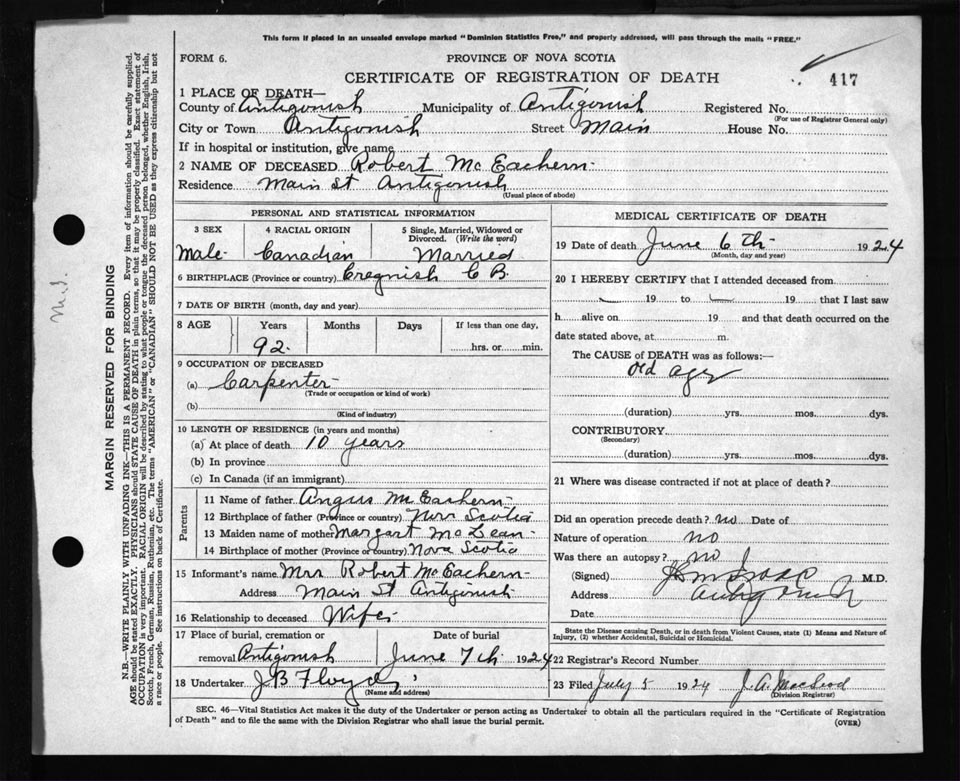 This form if placed in an unsealed envelope marked "Dominion Statistics Free," and properly addressed, will pass through the mails "FREE."
FORM 6.
PROVINCE OF NOVA SCOTIA
CERTIFICATE OF REGISTRATION OF DEATH
417
1 PLACE OF DEATH—
County of Antigonish Municipality of Antigonish Registered No.
(For use of Registrar General only)
City or Town Antigonish Street Main House No.
If in hospital or institution, give name
2 NAME OF DECEASED Robert McEachern
Residence Main St Antigonish
(Usual place of abode)
PERSONAL AND STATISTICAL INFORMATION
3 SEX 4 RACIAL ORIGIN 5 Single, Married, Widowed or Divorced. (Write the word)
Male Canadian Married
6 BIRTHPLACE (Province or country) Cregnish C B.
7 DATE OF BIRTH (month, day and year)
8 AGE Years Months Days If less than one day,
92 hrs. or min.
9 OCCUPATION OF DECEASED
(a) Carpenter
(Trade or occupation or kind of work)
(b)
(Kind of industry)
10 LENGTH OF RESIDENCE (in years and months)
(a) At place of death 10 years
(b) In province
(c) In Canada (if an immigrant)
Parents
11 Name of father Angus McEachern
12 Birthplace of father (Province or country) Nova Scotia
13 Maiden name of mother Margart McLean
14 Birthplace of mother (Province or country) Nova Scotia
15 Informant's name Mrs Robert McEachern
Address Main St Antigonish
16 Relationship to deceased Wife
17 Place of burial, cremation or removal Antigonish Date of burial June 7th 1924
18 Undertaker J B Floyd
(Name and address)
MEDICAL CERTIFICATE OF DEATH
19 Date of death June 6th 1924
(Month, day and year)
20 I HEREBY CERTIFY that I attended deceased from
19 to 19 that I last saw
h alive on 19 and that death occurred on the
date stated above, at m.
The CAUSE of DEATH was as follows:—
Old age
(duration) yrs. mos. dys.
CONTRIBUTORY
(Secondary)
(duration) yrs. mos. dys.
21 Where was disease contracted if not at place of death?
Did an operation precede death? no Date of
Nature of operation no
Was there an autopsy? no
(Signed) M.D.
Address Antigonish
Date
State the Disease causing Death, or in death from Violent Causes, state (1) Means and Nature of
Injury, (2) whether Accidental, Suicidal or Homicidal.
22 Registrar's Record Number
23 Filed July 5 1924 J.A. MacLeod
(Division Registrar)
SEC. 46—Vital Statistics Act makes it the duty of the Undertaker or person acting as Undertaker to obtain all the particulars required in the "Certificate of Registration
of Death" and to file the same with the Division Registrar who shall issue the burial permit.
(OVER)
MARGIN RESERVED FOR BINDING
N.B.—WRITE PLAINLY WITH UNFADING INK—THIS IS A PERMANENT RECORD. Every item of information should be carefully supplied.
AGE should be stated EXACTLY. PHYSICIANS should STATE CAUSE OF DEATH in plain terms, so that it may be properly classified. Exact statement of
OCCUPATION is very important. RACIAL ORIGIN will be described by stating to what people or tongue the deceased person belonged, whether English, Irish,
Scotch, French, German, Russian, Ruthenian, etc. The terms "AMERICAN" or "CANADIAN" SHOULD NOT BE USED as they express citizenship but not
a race or people. See instructions on back of Certificate.